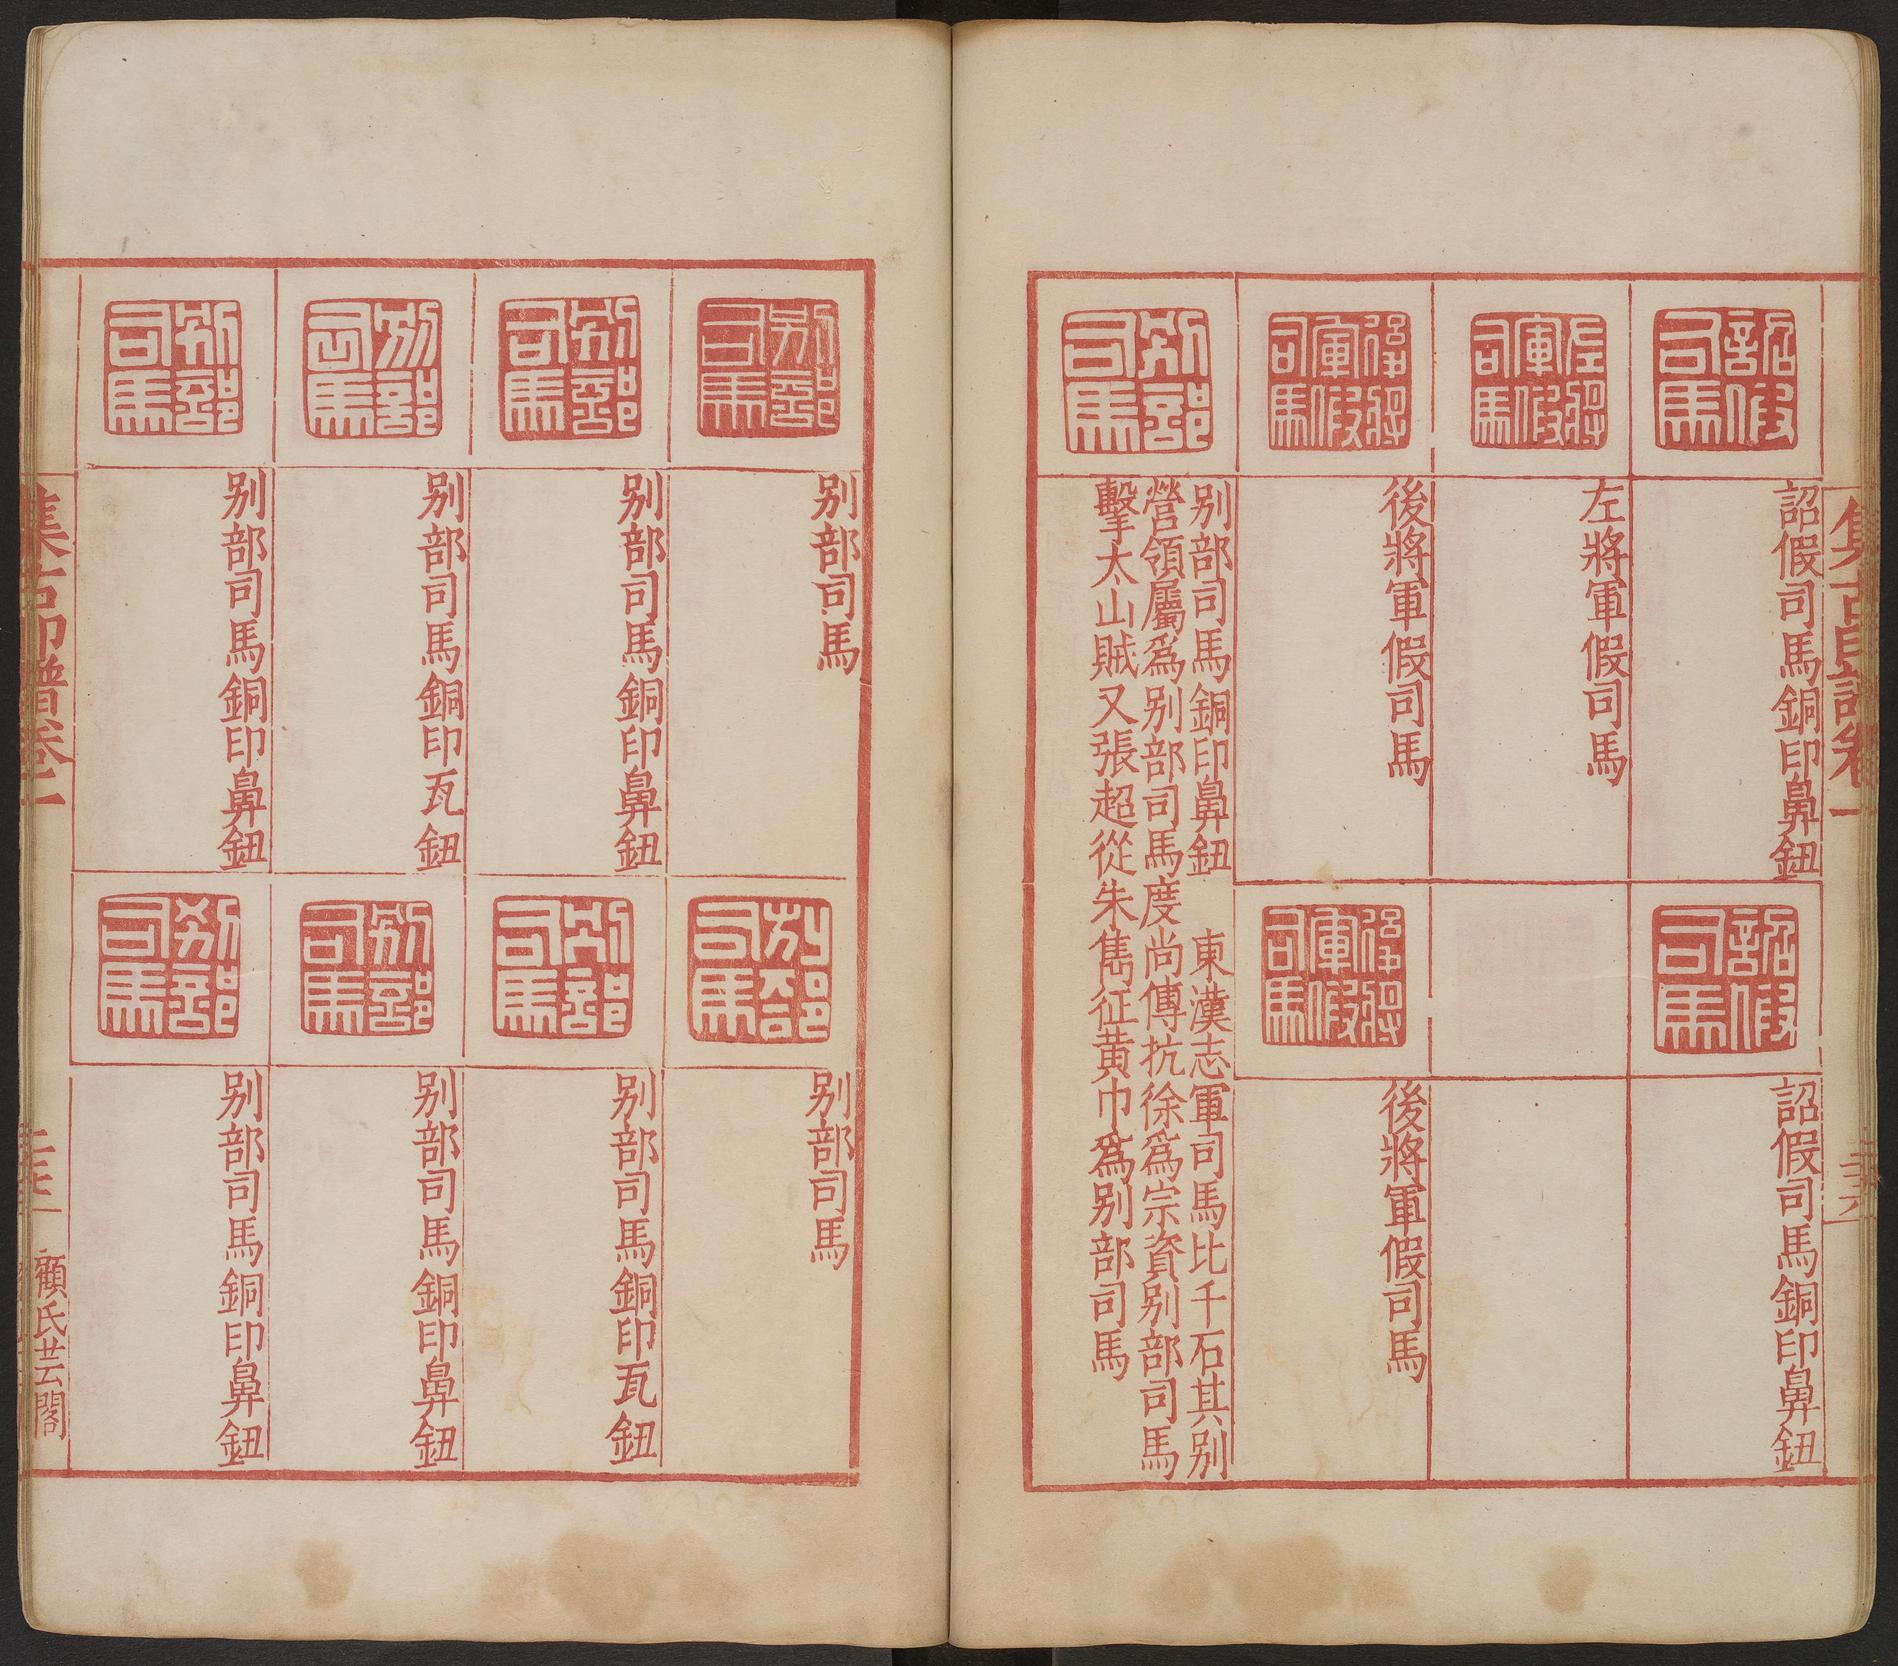 集古印譜卷二
詔假司馬
詔假司馬銅印鼻鈕
詔假司馬
詔假司馬銅印鼻鈕
左將軍假司馬
左將軍假司馬
後將軍假司馬
後將軍假司馬
後將軍假司馬
後將軍假司馬
別部司馬
別部司馬銅印鼻鈕 東漢志軍司馬比千石其別
營領屬爲別部司馬度尚傳抗徐爲宗資別部司馬
擊太山賊又張超從朱雋征黃巾爲別部司馬
別部司馬
別部司馬
別部司馬
別部司馬
別部司馬
別部司馬銅印鼻鈕
別部司馬
別部司馬銅印瓦鈕
別部司馬
別部司馬銅印瓦鈕
別部司馬
別部司馬銅印鼻鈕
別部司馬
別部司馬銅印鼻鈕
別部司馬
別部司馬銅印鼻鈕
集古印譜卷二
顧氏芸閣